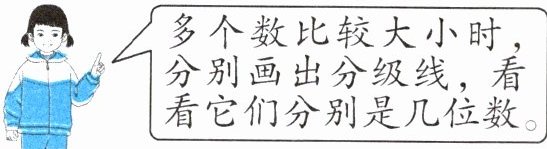 多个数比较大小时，
分别画出分级线，看
看它们分别是几位数。